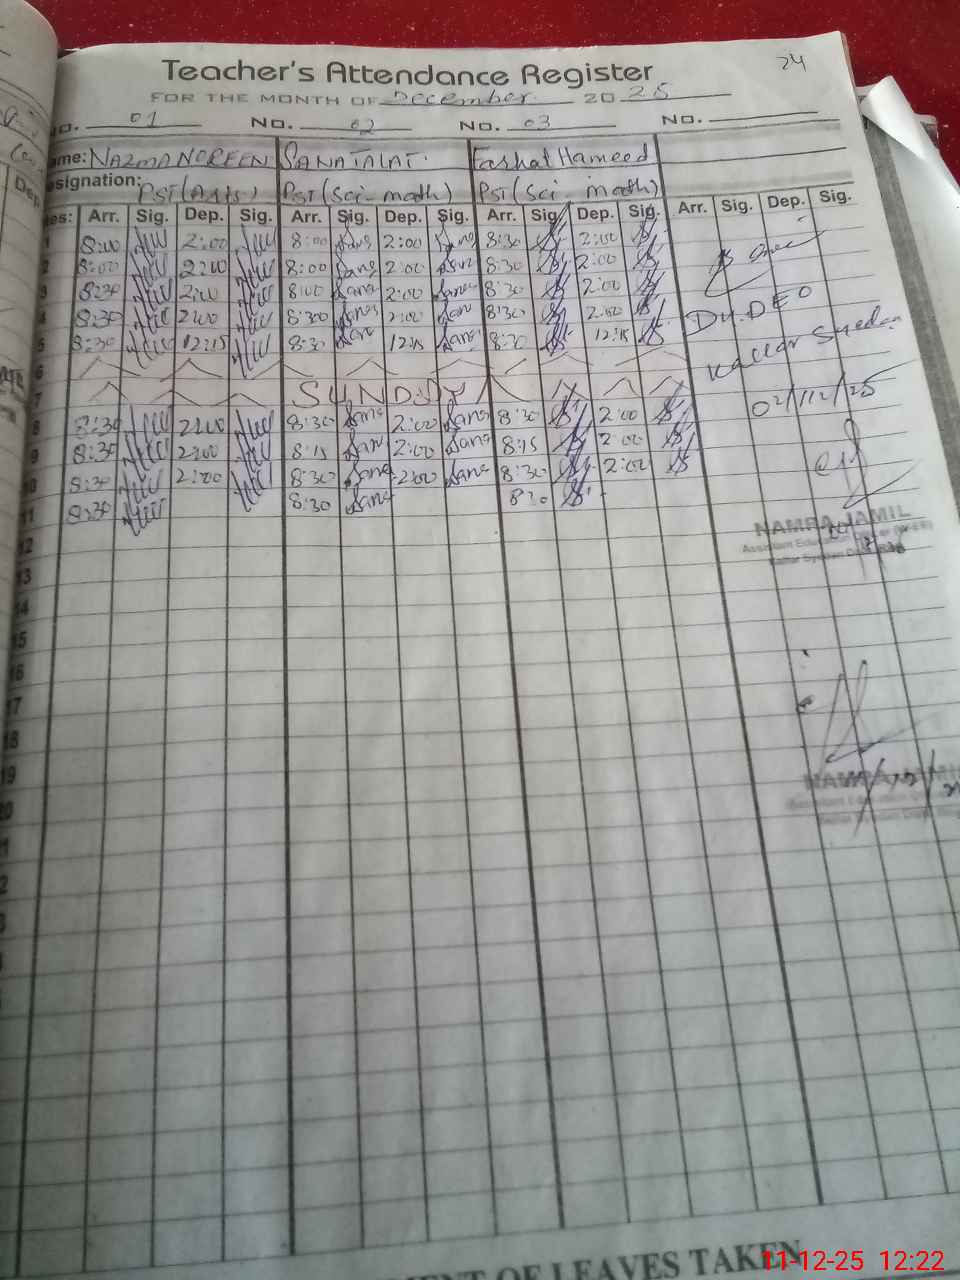 24
Teacher's Attendance Register
FOR THE MONTH OF December 2025
NO. 01 NO. 02 NO. 03 NO.
ame: NAZMA NOREEN SANA TALAT. Fashat Hameed
esignation: PST (Arts) PST (Sci-math) PST (Sci-math)
es: Arr. Sig. Dep. Sig. Arr. Sig. Dep. Sig. Arr. Sig. Dep. Sig. Arr. Sig. Dep. Sig.
1 8:00 2:00 8:00 Sana 2:00 Sana 8:30 2:00
2 8:00 2:00 8:00 Sana 2:00 Sana 8:30 2:00
3 8:30 2:00 8:00 Sana 2:00 Sana 8:30 2:00
4 8:30 2:00 8:300 Sana 2:00 Sana 8:30 2:00
5 8:30 12:15 8:30 Sana 12:15 Sana 8:30 12:15
6
7 SUNDAY
8 8:30 2:00 8:30 Sana 2:00 Sana 8:30 2:00
9 8:30 2:00 8:15 Sana 2:00 Sana 8:15 2:00
10 8:30 2:00 8:30 Sana 2:00 Sana 8:30 2:00
11 8:30 8:30 Sana 8:30
12
13
14
15
16
17
18
19
20
Dy. DEO
Kallar Syedan
02/12/25
NAMRA JAMIL
Assistant Education
Kallar Syedan
NAMRA JAMIL
Assistant
Kallar Syedan
ENT OF LEAVES TAKEN
11-12-25 12:22